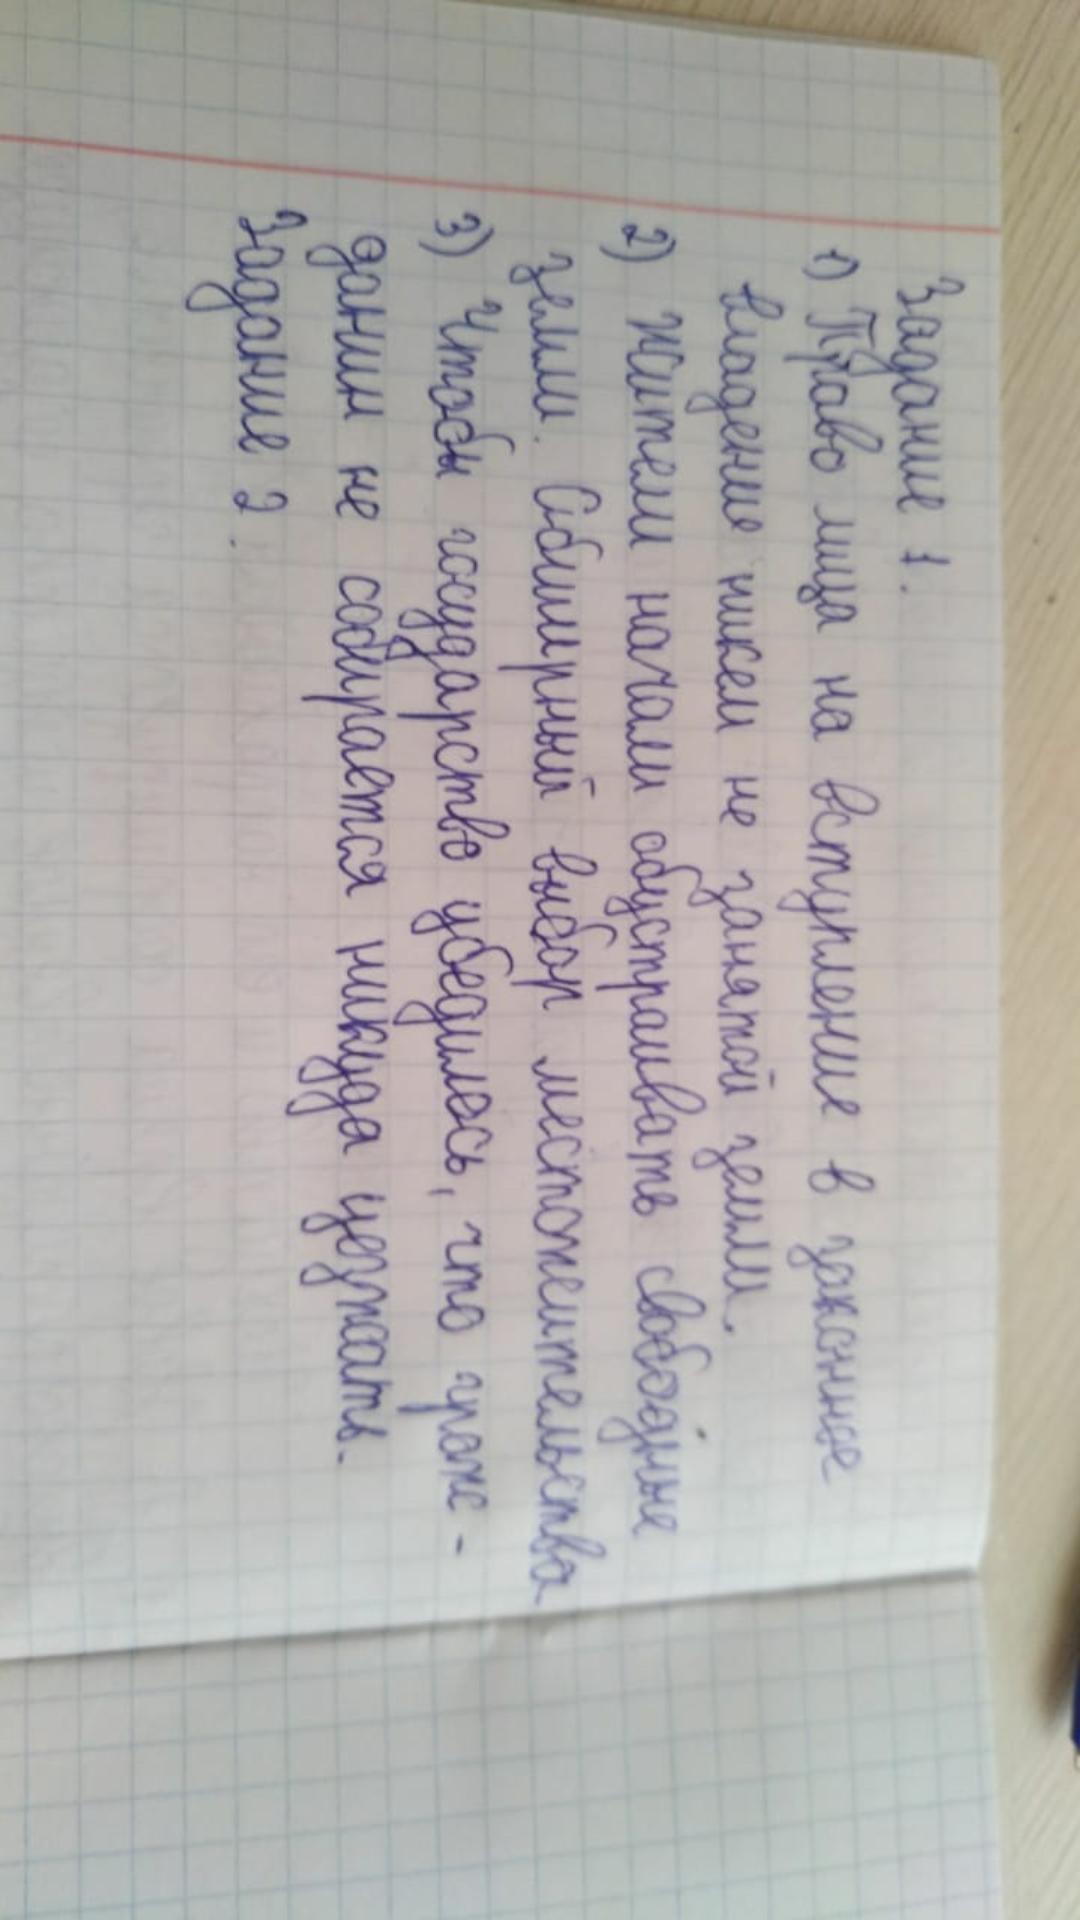 Задание 1.
1) Право лица на вступление в законное
владение никем не занятой земли.
2) Жители начали обустраивать свободные
земли. Обширный выбор местожительства
3) Чтобы государство убедилось, что граж-
данин не собирается никуда уезжать.
Задание 2.